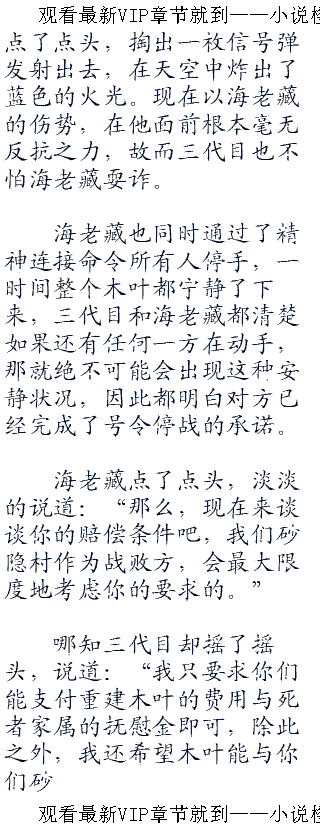 观看最新VIP章节就到——小说检
点了点头，掏出一枚信号弹
发射出去，在天空中炸出了
蓝色的火光。现在以海老藏
的伤势，在他面前根本毫无
反抗之力，故而三代目也不
怕海老藏耍诈。
海老藏也同时通过了精
神连接命令所有人停手，一
时间整个木叶都宁静了下
来，三代目和海老藏都清楚
如果还有任何一方在动手，
那就绝不可能会出现这种安
静状况，因此都明白对方已
经完成了号令停战的承诺。
海老藏点了点头，淡淡
的说道：“那么，现在来谈
谈你的赔偿条件吧，我们砂
隐村作为战败方，会最大限
度地考虑你的要求的。”
哪知三代目却摇了摇
头，说道：“我只要求你们
能支付重建木叶的费用与死
者家属的抚慰金即可，除此
之外，我还希望木叶能与你
们砂
观看最新VIP章节就到——小说检